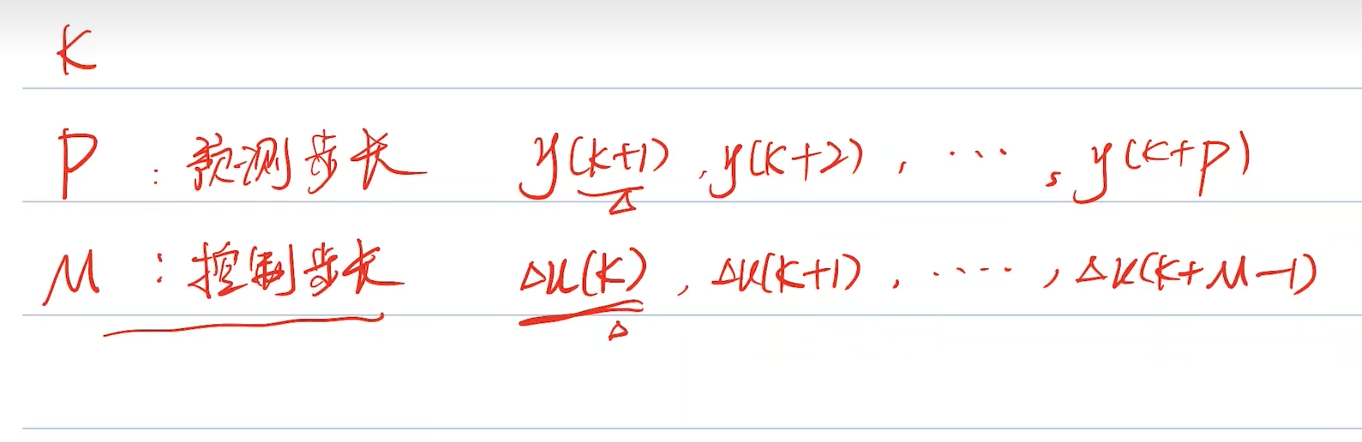 K
P : 预测步长 y(k+1), y(k+2), ..., y(k+p)
M : 控制步长 Δu(k), Δu(k+1), ....., Δu(k+M-1)